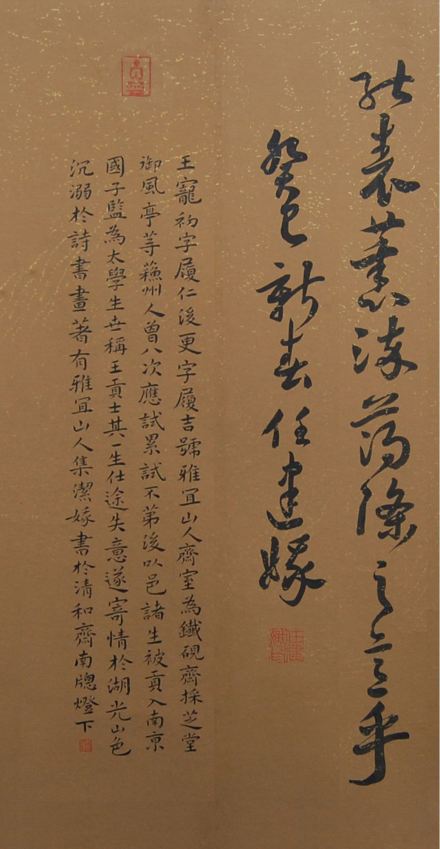 蕩 之 乎
癸巳新春任建嫁
王寵初字履仁後更字履吉號雅宜山人齋室為鐵硯齋採芝堂
御風亭等蘇州人曾八次應試累試不弟後以邑諸生被貢入南京
國子監為太學生世稱王貢士其一生仕途失意遂寄情於湖光山色
沉溺於詩書畫著有雅宜山人集潔嫁書於清和齋南牕燈下